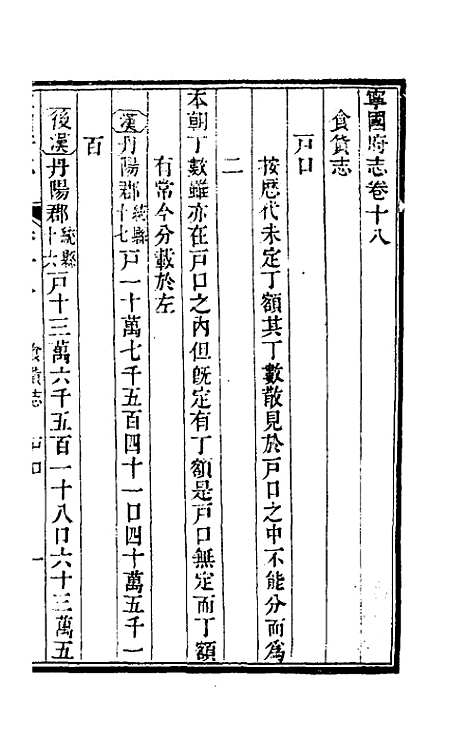 寧國府志卷十八
食貨志
戸口
按歷代未定丁額其丁數散見於戸口之中不能分而爲
二
本朝丁數雖亦在戸口之内但旣定有丁額是戸口無定而丁額
有常今分載於左
漢丹陽郡統縣十七戸一十萬七千五百四十一口四十萬五千一
百
後漢丹陽郡統縣十六戸十三萬六千五百一十八口六十三萬五
食貨志 戸口 一